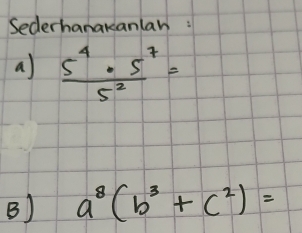 Sederhanakanlah :
a) \frac{5^4 \cdot 5^7}{5^2} =
B) a^8 (b^3 + c^2) =